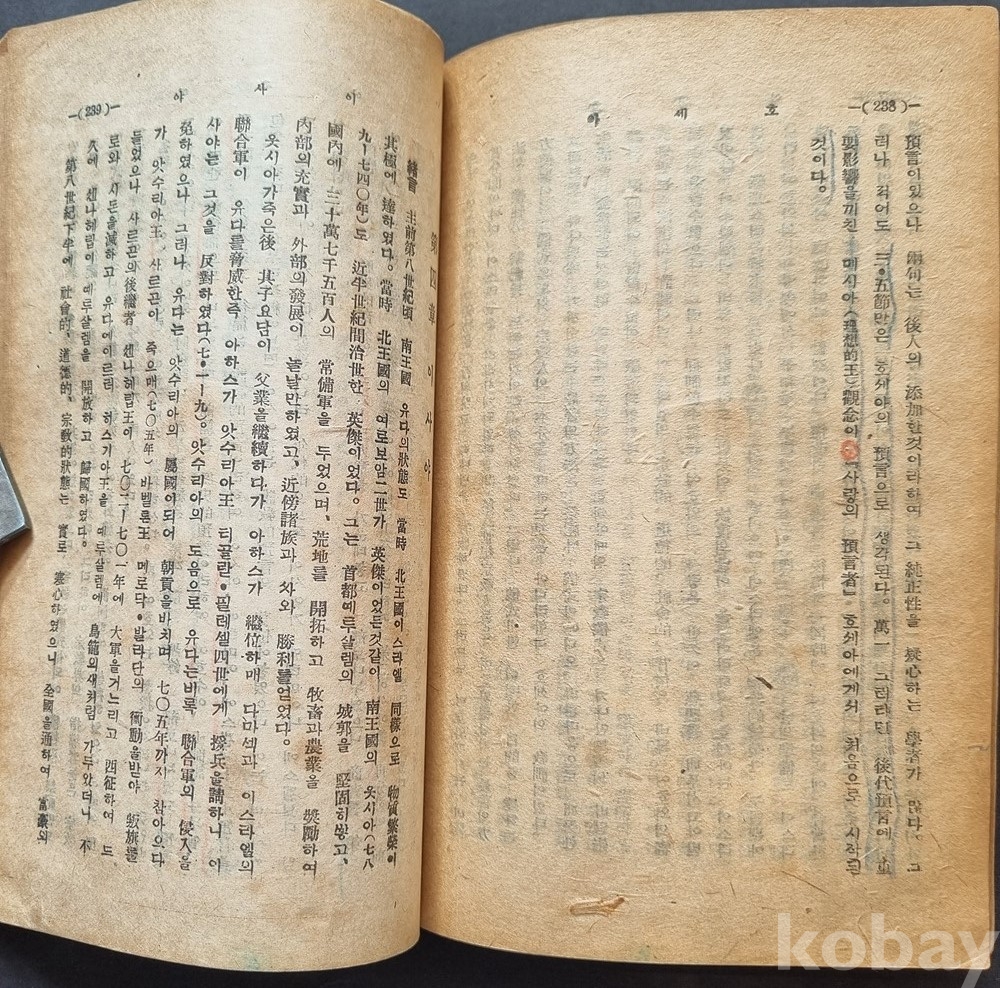 —(238)—
호 세 아
預言이있으나 兩句는 後人의 添加한것이라하여 그 純正性을 疑心하는 學者가 많다。 그
러나 적어도 三・五節만은 호세아의 預言으로 생각된다。 萬一 그러라면 後代預言에 重
要影響을끼친 메시아(理想的王)觀念아 「사랑의 預言者」 호세아에게서 처음으로 시작된
것이다。
—(239)—
이 사 야
第 四 章 이 사 야
緖言 主前第八世紀頃 南王國 유다의狀態도 當時 北王國이스라엘 同樣으로 物質繁榮이
北極에 達하였다。 當時 北王國의 여로보암二世가 英傑이었든것같이 南王國의 웃시아(七八
九ー七四〇年)도 近半世紀間治世한 英傑이었다。 그는 首都예루살렘의 城郭을 堅固히쌓고、
國內에 三十萬七千五百人의 常備軍을 두었으며、 荒地를 開拓하고 牧畜과農業을 奬勵하여
內部의充實과 外部의發展이 놀날만하였고、 近傍諸族과 차와 勝利를얻었다。
웃시아가죽은後 其子요담이 父業을繼續하다가 아하스가 繼位하매 다마섹과 이스라엘의
聯合軍이 유다를脅威한즉 아하스가 앗수리아王 티글란・필레셀四世에게 援兵을請하니 이
사야는 그것을 反對하였다(七・一ー九)。 앗수리아의 도음으로 유다는비록 聯合軍의 侵入을
免하였으나 그러나 유다는 앗수리아의 屬國이되어 朝貢을바치며 七〇五年까지 참아오다
가 앗수리아王 사르곤이 죽으매(七〇五年) 바벨론王 메로닥・발라단의 衝動을받아 叛旗를
들었으나 사르곤의後繼者 센나헤립王이 七〇二ー七〇一年에 大軍을거느리고 西征하여 드
로와 시돈을滅하고 유다에이르러 히스기아王을 예루살렘에 鳥籠의새처럼 가두았더니 不
久에 센나헤립이예루살렘을 開放하고 歸國하였다。
第八世紀下半에 社會的、道德的、宗敎的狀態는 實로 寒心하였으니 全國을通하여 富豪의
kobay